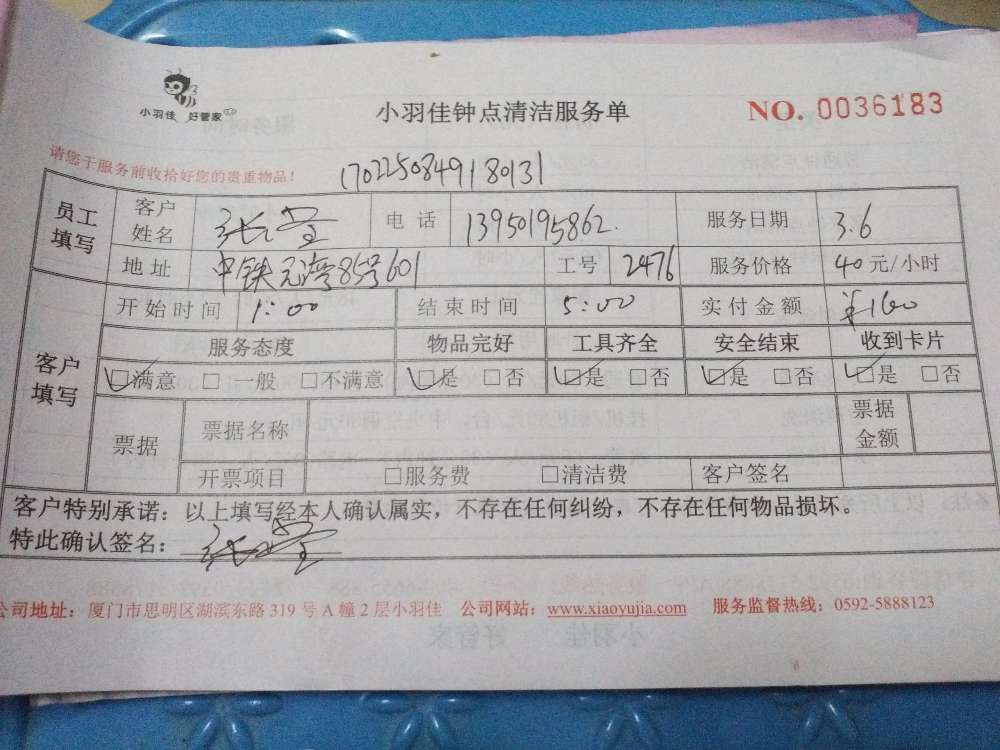 小羽佳 好管家
小羽佳钟点清洁服务单
NO. 0036183
请您于服务前收拾好您的贵重物品！
170225084918013 1
员工填写 客户姓名 张莹 电话 13950195862. 服务日期 3.6
地址 中铁元湾85号601 工号 2476 服务价格 40元/小时
客户填写 开始时间 1：00 结束时间 5：00 实付金额 ¥160
服务态度 物品完好 工具齐全 安全结束 收到卡片
☑满意 □一般 □不满意 ☑是 □否 ☑是 □否 ☑是 □否 ☑是 □否
票据 票据名称 票据金额
开票项目 □服务费 □清洁费 客户签名
客户特别承诺：以上填写经本人确认属实，不存在任何纠纷，不存在任何物品损坏。
特此确认签名：张莹
公司地址：厦门市思明区湖滨东路319号A幢2层小羽佳 公司网站：www.xiaoyujia.com 服务监督热线：0592-5888123